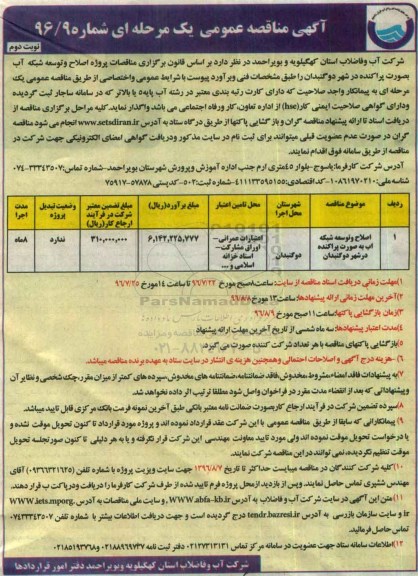 آگهی مناقصه عمومی یک مرحله ای شماره ۹۶/۹
نوبت دوم
شرکت آب وفاضلاب استان کهگیلویه و بویراحمد در نظر دارد بر اساس قانون برگزاری مناقصات پروژه اصلاح و توسعه شبکه آب
بصورت پراکنده در شهر دوگنبدان را طبق مشخصات فنی وبرآورد پیوست با شرایط عمومی واختصاصی از طریق مناقصه عمومی یک
مرحله ای به پیمانکار واجد صلاحیت که دارای کارت رتبه بندی معتبر در رشته آب پایه۵ یا بالاتر که در سامانه ساجار ثبت گردیده
ودارای گواهی صلاحیت ایمنی کار(hse) از اداره تعاون،کار ورفاه اجتماعی می باشد واگذار نماید.کلیه مراحل برگزاری مناقصه از
دریافت اسناد تا ارائه پیشنهاد مناقصه گران و باز گشایی پاکتها از طریق درگاه ستاد به آدرس www.setsdiran.ir انجام می شود مناقصه
گران در صورت عدم عضویت قبلی میتوانند برای ثبت نام در سایت مذکور ودریافت گواهی امضای الکترونیکی جهت شرکت در
مناقصه از طریق سامانه فوق اقدام نمایند.
آدرس شرکت کارفرما:یاسوج-بلوار ۴۵متری ارم جنب اداره آموزش وپرورش شهرستان بویراحمد-شماره تماس:۳۳۳۴۳۵۰۷-۰۷۴
شناسه ملی:۱۰۸۶۱۹۷۰۲۱۰-کد اقتصادی:۴۱۱۱۳۳۵۹۵۱۵۵-شماره ثبت:۵۰۲-کدپستی ۵۷۸۷۸-۷۵۹۱۷
ردیف موضوع مناقصه شهرستان محل اجرا محل تامین اعتبار مبلغ برآورد(ریال) مبلغ تضمین معتبر شرکت در فرآیند ارجاع کار(ریال) وضعیت تبدیل پروژه مدت اجرا
۱ اصلاح وتوسعه شبکه آب به صورت پراکنده در شهر دوگنبدان دوگنبدان اعتبارات عمرانی- اوراق مشارکت- اسناد خزانه اسلامی و... ۶,۱۴۲,۲۲۵,۷۷۷ ۳۱۰,۰۰۰,۰۰۰ ندارد ۸ماه
۱)مهلت زمانی دریافت اسناد مناقصه از سایت:ساعت۸صبح مورخ ۹۶/۷/۲۲ تا ساعت ۱۴ مورخ ۹۶/۷/۲۵
۲)آخرین مهلت زمانی ارائه پیشنهادها:ساعت۱۳ مورخ ۹۶/۸/۸
۳)زمان بازگشایی پاکتها:ساعت ۱۱ صبح مورخ ۹۶/۸/۹
۴)مدت اعتبار پیشنهادها: سه ماه شمسی از تاریخ آخرین مهلت ارائه پیشنهاد
۵)بازگشایی پاکتهای مناقصه با هر تعداد شرکت کننده صورت می گیرد.
۶)-هزینه درج آگهی و اصلاحات احتمالی وهمچنین هزینه ی انتشار در سایت ستاد به عهده برنده مناقصه میباشد.
۷)به پیشنهادات فاقد امضاء،مشروط،مخدوش،فاقد ضمانتنامه،ضمانتنامه های مخدوش،سپرده های کمتر از میزان مقرر،چک شخصی و نظایر آن
و پیشنهاداتی که بعد از انقضاء مدت مقرر در فراخوان واصل شود مطلقا ترتیب اثر داده نخواهد شد.
۸)سپرده تضمین شرکت در فرآیند ارجاع کار بصورت ضمانت نامه معتبر بانکی طبق آخرین نمونه فرمت بانک مرکزی قابل تایید میباشد.
۹)پیمانکارانی که سابقا از طریق مناقصه عمومی با این شرکت عقد قرارداد نموده اند و پروژه مورد قرارداد تا کنون تحویل موقت نشده و
یا درخواست تحویل موقت نموده اند ولی مورد تایید معاونت مهندسی این شرکت قرار نگرفته و یا به هر دلیلی تا کنون صورتجلسه تحویل
موقت تنظیم نگردیده،نمی توانند در این مناقصه شرکت نمایند.
۱۰)کلیه شرکت کنندگان در مناقصه میبایست حداکثر تا تاریخ ۱۳۹۶/۸/۷ جهت سایت ویزیت پروژه با شماره تلفن (۰۹۳۶۶۳۲۱۶۲۵) آقای
مهندس شنبری تماس حاصل نمایند. وپس از بازدید از محل پروژه فرم تایید شده از طرف شرکت کارفرما را دریافت ودرپاکت ب قرار دهند.
۱۱)متن این آگهی در سایت شرکت آب و فاضلاب به آدرس WWW.abfa-kb.ir و سایت ملی مناقصات به آدرس WWW.iets.mporg.
ir و سایت سازمان بازرسی به آدرس tendr.bazresi.ir درج گردیده است و جهت دریافت اطلاعات بیشتر با شماره تلفن ۰۷۴۳۳۳۴۳۵۰۷
تماس حاصل فرمائید.
۱۲)اطلاعات سامانه ستاد جهت عضویت در سامانه مرکز تماس ۰۲۱۲۷۳۱۳۱۳۱ دفتر ثبت نامه ۰۲۱۸۸۹۶۹۷۳۷ و ۰۲۱۸۵۱۹۳۷۶۸
شرکت آب وفاضلاب استان کهگیلویه وبویراحمد دفتر امور قراردادها